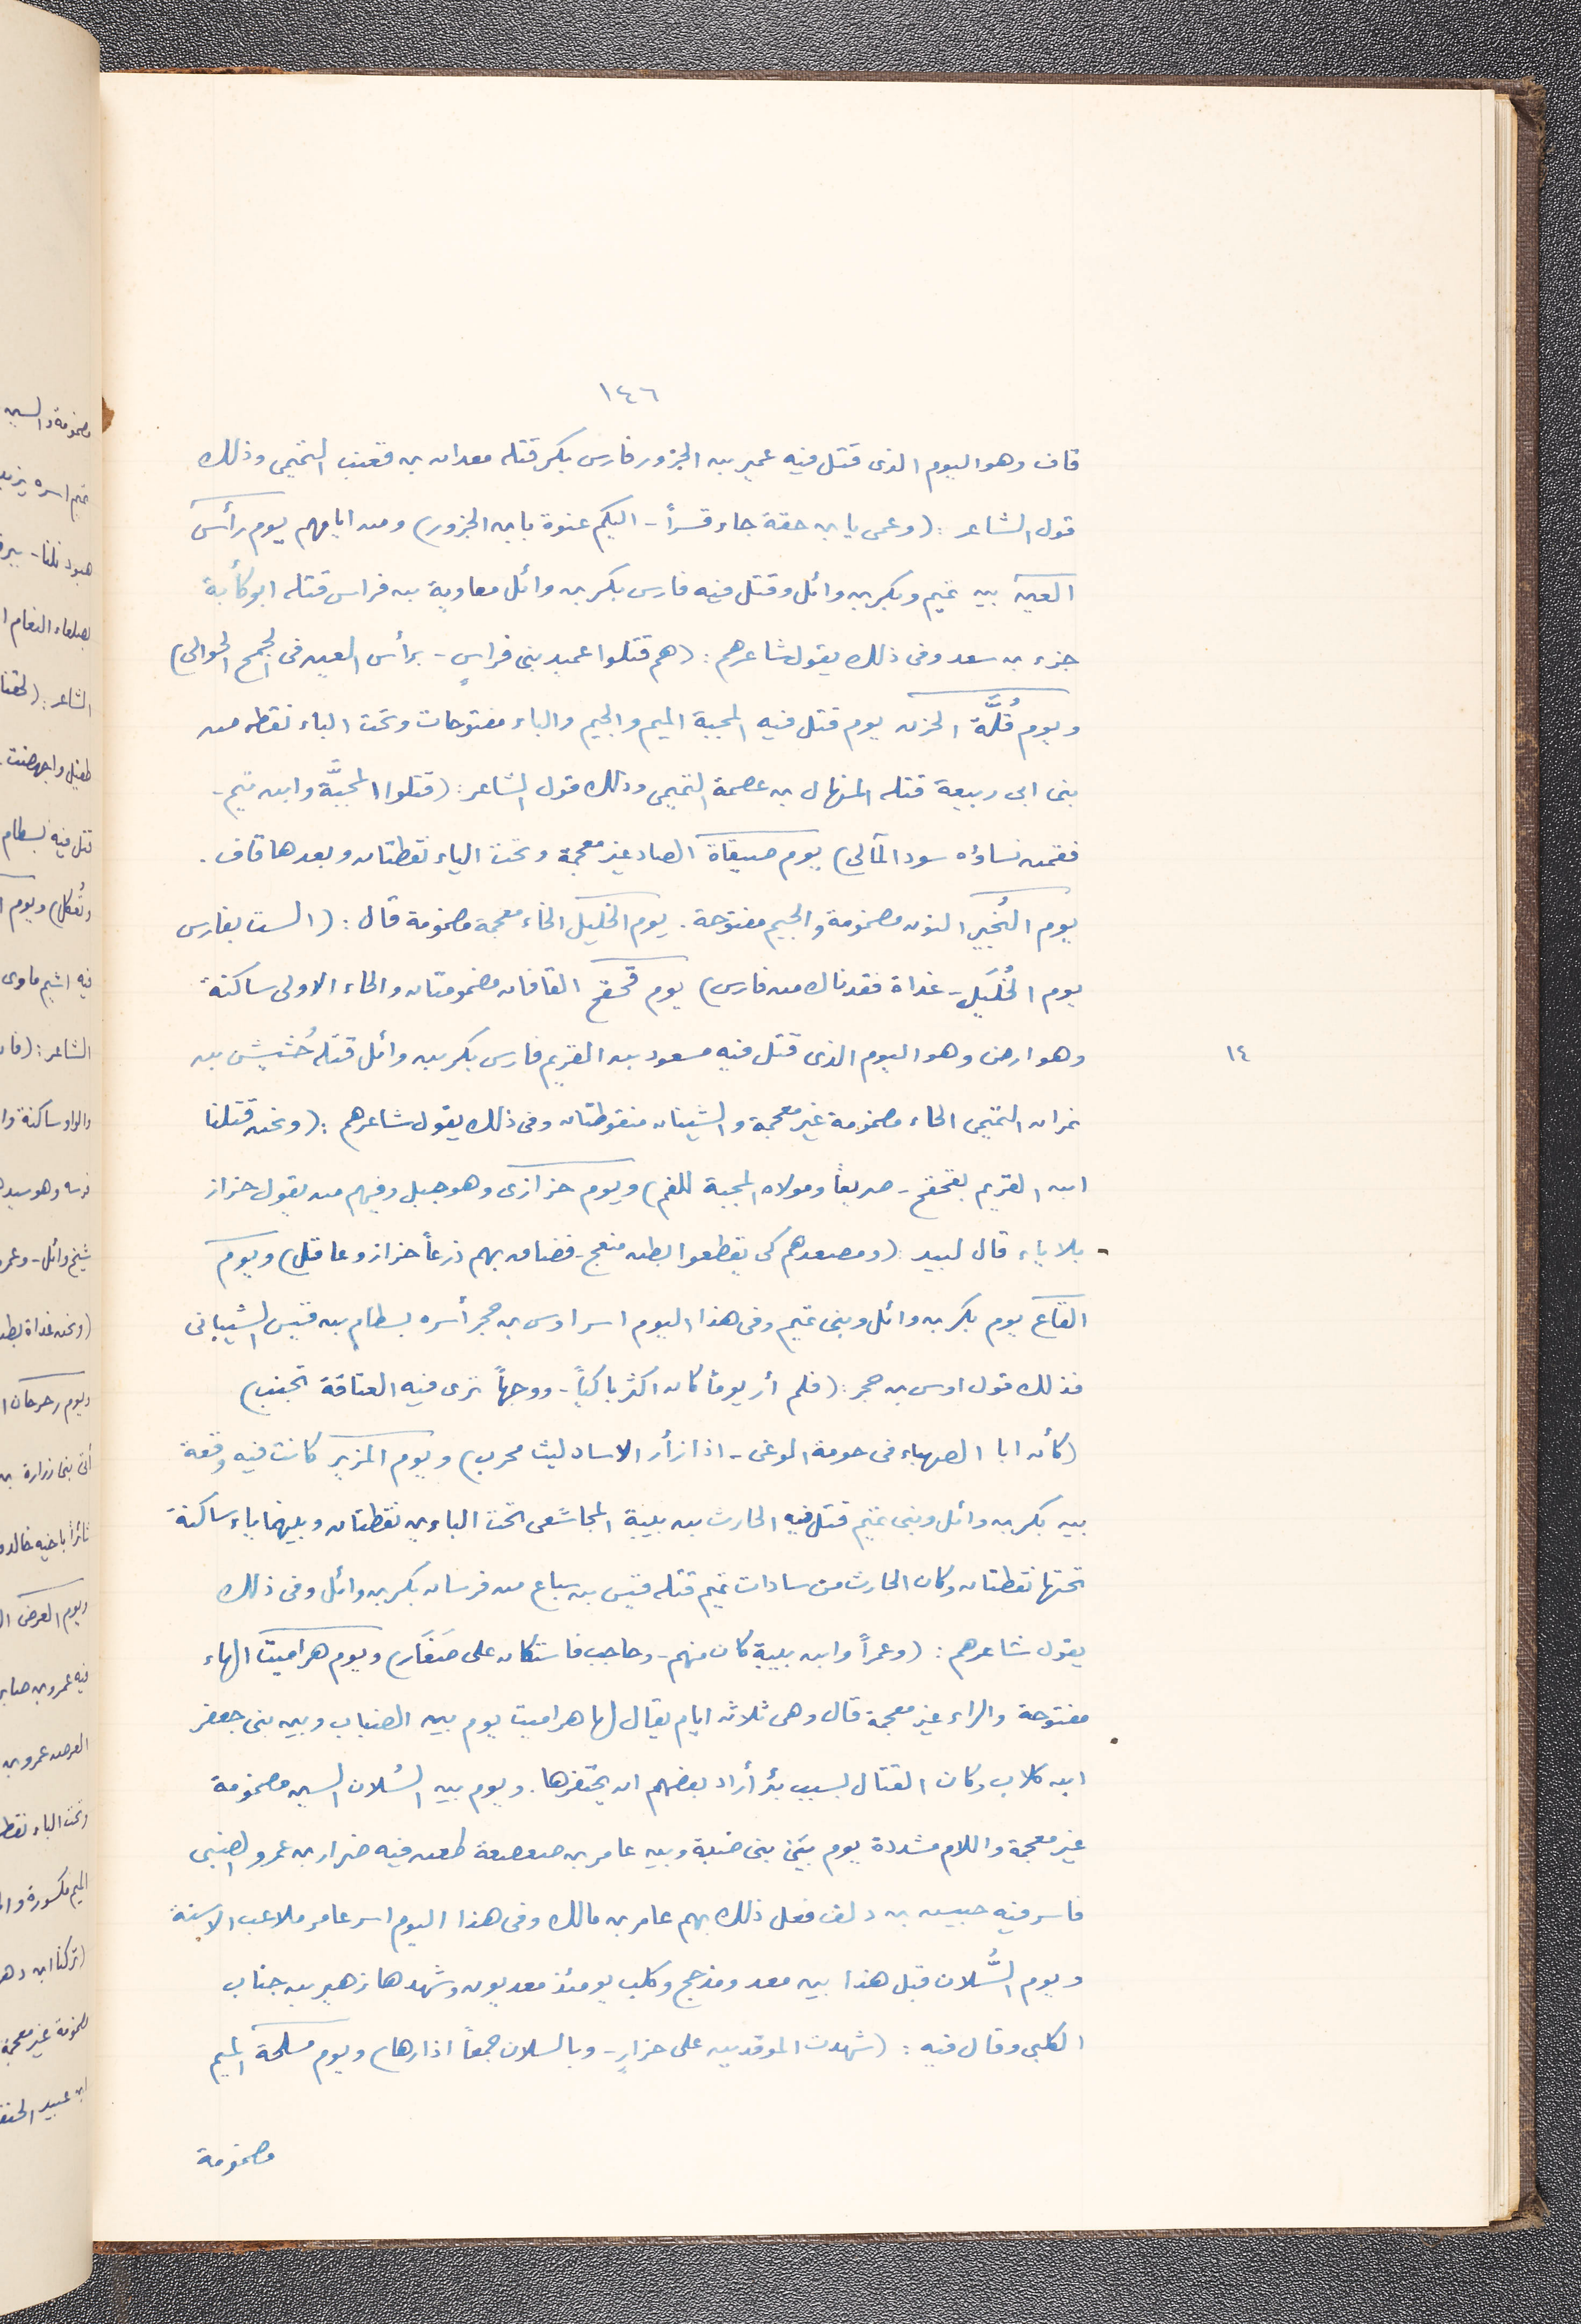 ١٤٦
قاف وهو اليوم الذى قتل فيه عمير بن الجزور فارس بكر قتله معدان بن قعنب التميمى وذلك
قول الشاعر : (وعمى يا بن حقة جاء قسراً - اليكم عنوة بابن الجزور) ومن ايامهم يوم رأس
العين بين تميم وبكر بن وائل وقتل فيه فارس بكر بن وائل معاوية بن فراس قتله ابو كأبة
جزء بن سعد وفى ذلك يقول شاعرهم : (هم قتلوا عميد بنى فراسٍ - برأس العين فى الحجج الخوالى)
ويوم قُلَّة الحزن يوم قتل فيه المجبة الميم والجيم والباء مفتوحات وتحت الباء نقطه من
بنى ابى ربيعة قتله المنهال بن عصمة التميمى وذلك قول الشاعر : (قتلوا المجبَّة وابن تيم -
فقمن نساؤه سود المآلى) يوم صيقاة الصاد غير معجمة وتحت الياء نقطتان وبعدها قاف .
يوم النُجير النون مضمومة والجيم مفتوحة . يوم الخليل الخاء معجمة مضمومة قال : (الست بفارس
يوم الخُلَيل - غداة فقدناك من فارس) يوم قحقح القافان مضمومتان والحاء الاولى ساكنة
وهو ارض وهو اليوم الذى قتل فيه مسعود بن القريم فارس بكر بن وائل قتله حُشيش بن
١٤
نمران التميمى الحاء مضمومة غير معجمة والشينان منقوطتان وفى ذلك يقول شاعرهم : (ونحن قتلنا
ابن القريم بقحقح - صريعاً ومولاه المجبة للفم) ويوم خزازى وهو جبل وفيهم من يقول خزاز
بلا ياء قال لبيد : (ومصعدهم كى يقطعوا بطن منعج - فضاق بهم ذرعاً خزاز وعاقل) ويوم
القاع يوم بكر بن وائل وبنى تميم وفى هذا اليوم اسر اوس بن حجر أسره بسطام بن قيس الشيبانى
فذلك قول اوس بن حجر : (فلم أر يوماً كان اكثر باكياً - ووجهاً نرى فيه العتاقة تجنب)
(كأن ابا الصهباء فى حومة الوغى - اذا زأر الاساد ليث محرب) ويوم المزير كانت فيه وقعة
بين بكر بن وائل وبنى تميم قتل فيه الحارث بن بيبة المجاشعى تحت الباءين نقطتان وبينهما ياء ساكنة
تحتها نقطتان وكان الحارث من سادات تميم قتله قيس بن سباع من فرسان بكر بن وائل وفى ذلك
يقول شاعرهم : (وعمراً وابن بيبة كان منهم - وحاجب فاستكان على صَغَار) ويوم هراميت الهاء
مفتوحة والراء غير معجمة قال وهى ثلاثه ايام يقال لها هراميت يوم بين الضباب وبين بنى جعفر
ابن كلاب وكان القتال بسبب بئر أراد بعضهم ان يحتفرها . ويوم بين السُلان السين مضمومة
غير معجمة واللام مشددة يوم بين بنى ضبة وبين عامر بن صعصعة طعن فيه ضرار بن عمرو الضبى
فاسر فيه حبيش بن دلف فعل ذلك بهم عامر بن مالك وفى هذا اليوم اسر عامر ملاعب الاسنة
ويوم السُّلان قبل هذا بين معد ومذحج وكلب يومئذ معديون وشهدها زهير بن جناب
الكلبى وقال فيه : (شهدت الموقدين على خزازٍ - وبالسلان جمعاً اذا رهاء) ويوم مسلحة الميم
مضمومة